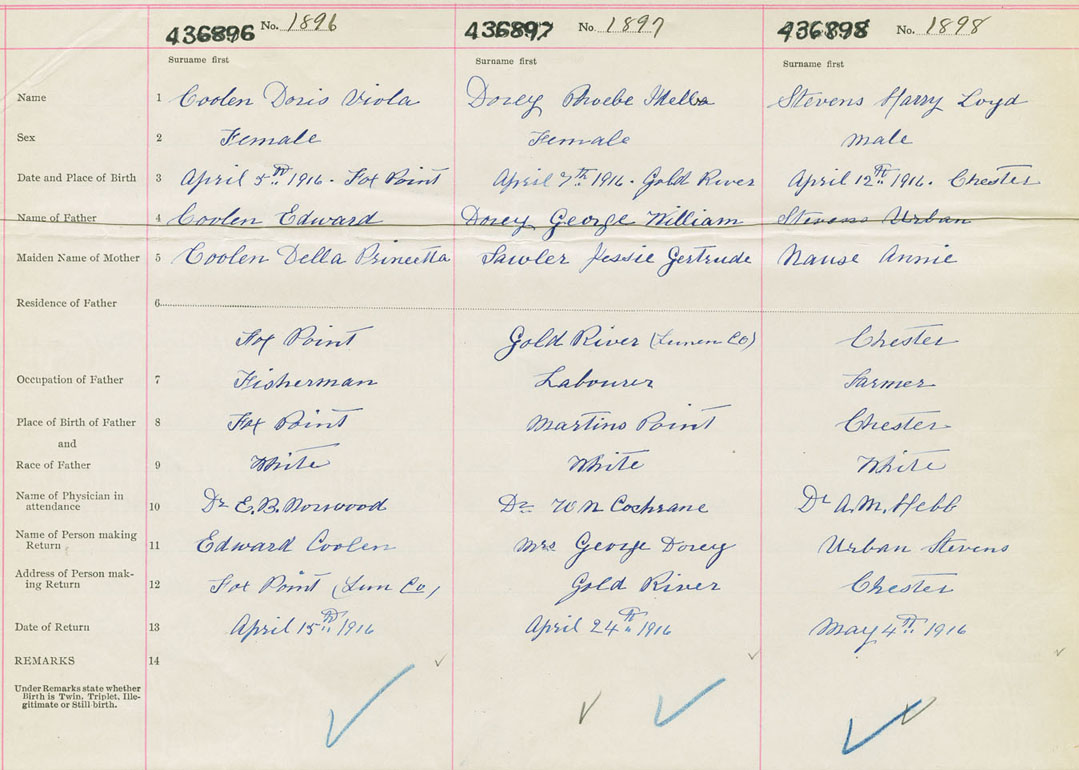 436896 No. 1896 436897 No 1897 436898 No. 1898
Surname first Surname first Surname first
Name 1 Coolen Doris Viola Dorey Phoebe Melba Stevens Harry Loyd
Sex 2 Female Female male
Date and Place of Birth 3 April 5th 1916. Fox Point April 7th 1916. Gold River April 12th 1916. Chester
Name of Father 4 Coolen Edward Dorey George William Stevens Urban
Maiden Name of Mother 5 Coolen Della Princetta Sawler Jessie Gertrude Nause Annie
Residence of Father 6
Fox Point Gold River (Lunen Co) Chester
Occupation of Father 7 Fisherman Labourer Farmer
Place of Birth of Father 8 Fox Point Martins Point Chester
and
Race of Father 9 White White White
Name of Physician in
attendance 10 Dr E.B. Norwood Dr W N Cochrane Dr A.M. Hebb
Name of Person making
Return 11 Edward Coolen Mrs George Dorey Urban Stevens
Address of Person mak-
ing Return 12 Fox Point (Lun Co) Gold River Chester
Date of Return 13 April 15th 1916 April 24th 1916 May 4th 1916
REMARKS 14
Under Remarks state whether
Birth is Twin, Triplet, Ille-
gitimate or Still-birth.